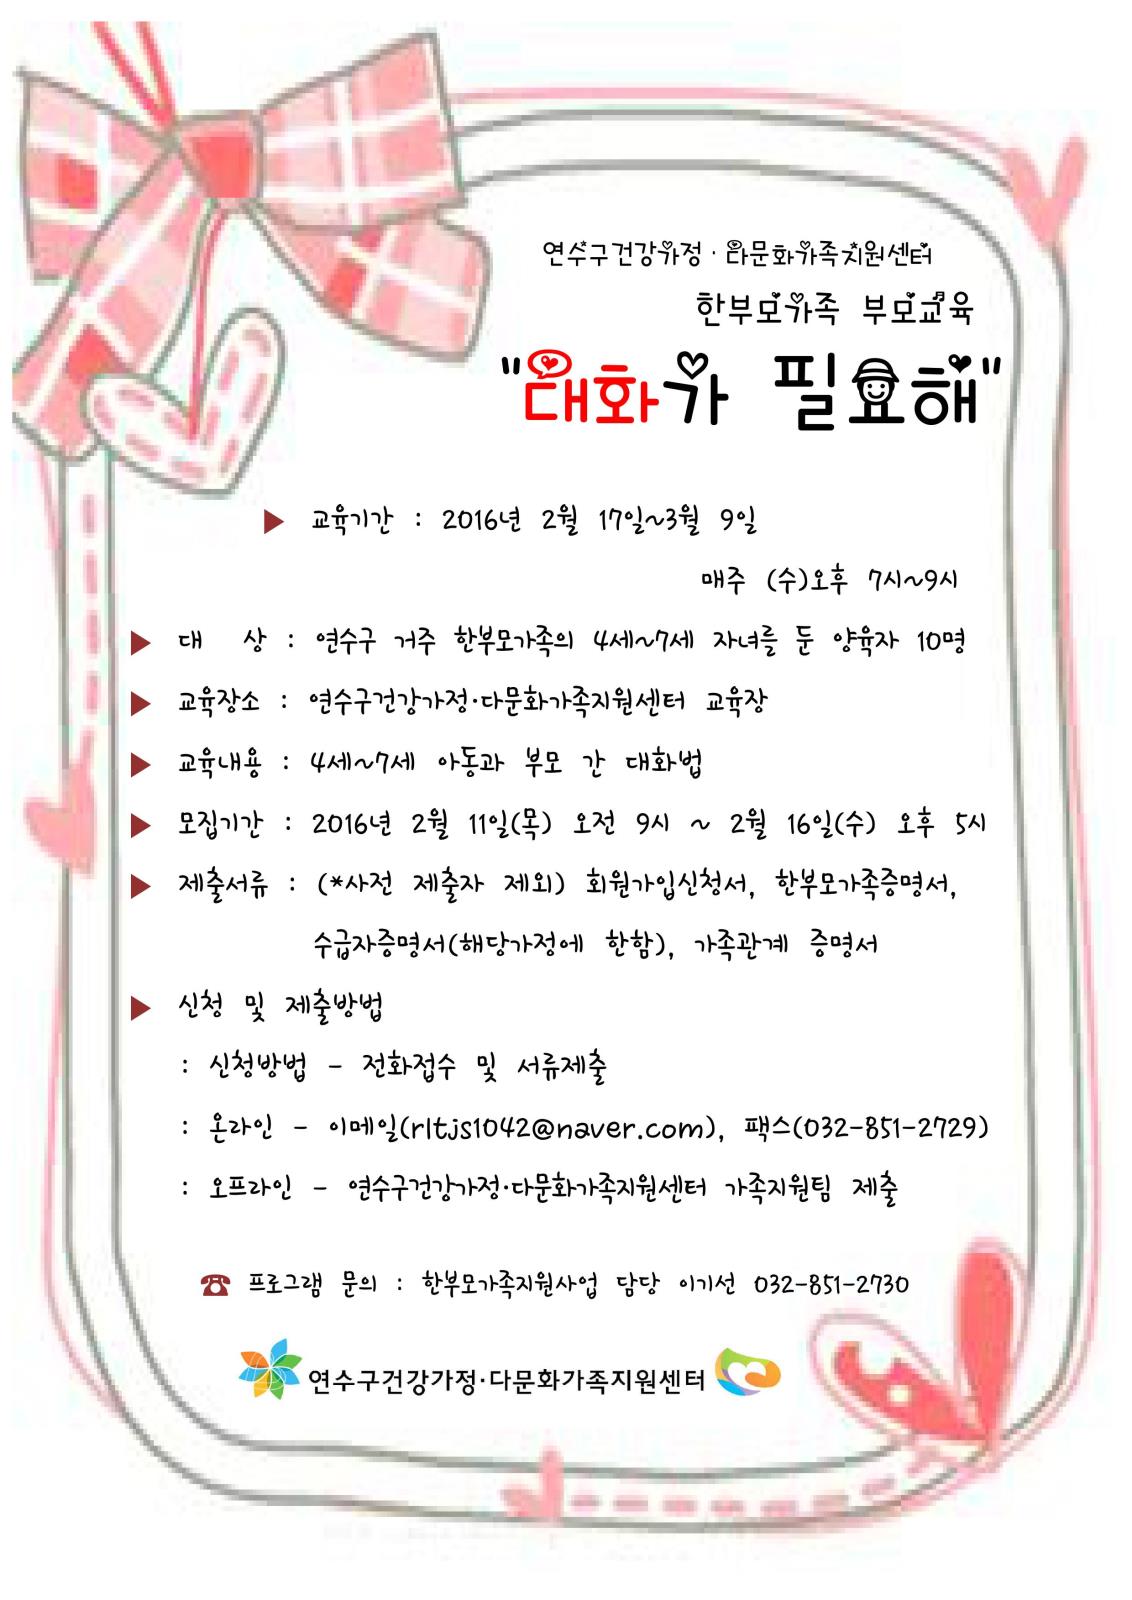 연수구건강가정·다문화가족지원센터
한부모가족 부모교육
"대화가 필요해"
▶ 교육기간 : 2016년 2월 17일~3월 9일
매주 (수)오후 7시~9시
▶ 대 상 : 연수구 거주 한부모가족의 4세~7세 자녀를 둔 양육자 10명
▶ 교육장소 : 연수구건강가정·다문화가족지원센터 교육장
▶ 교육내용 : 4세~7세 아동과 부모 간 대화법
▶ 모집기간 : 2016년 2월 11일(목) 오전 9시 ~ 2월 16일(수) 오후 5시
▶ 제출서류 : (*사전 제출자 제외) 회원가입신청서, 한부모가족증명서,
수급자증명서(해당가정에 한함), 가족관계 증명서
▶ 신청 및 제출방법
: 신청방법 - 전화접수 및 서류제출
: 온라인 - 이메일(rltjs1042@naver.com), 팩스(032-851-2729)
: 오프라인 - 연수구건강가정·다문화가족지원센터 가족지원팀 제출
☎ 프로그램 문의 : 한부모가족지원사업 담당 이기선 032-851-2730
연수구건강가정·다문화가족지원센터